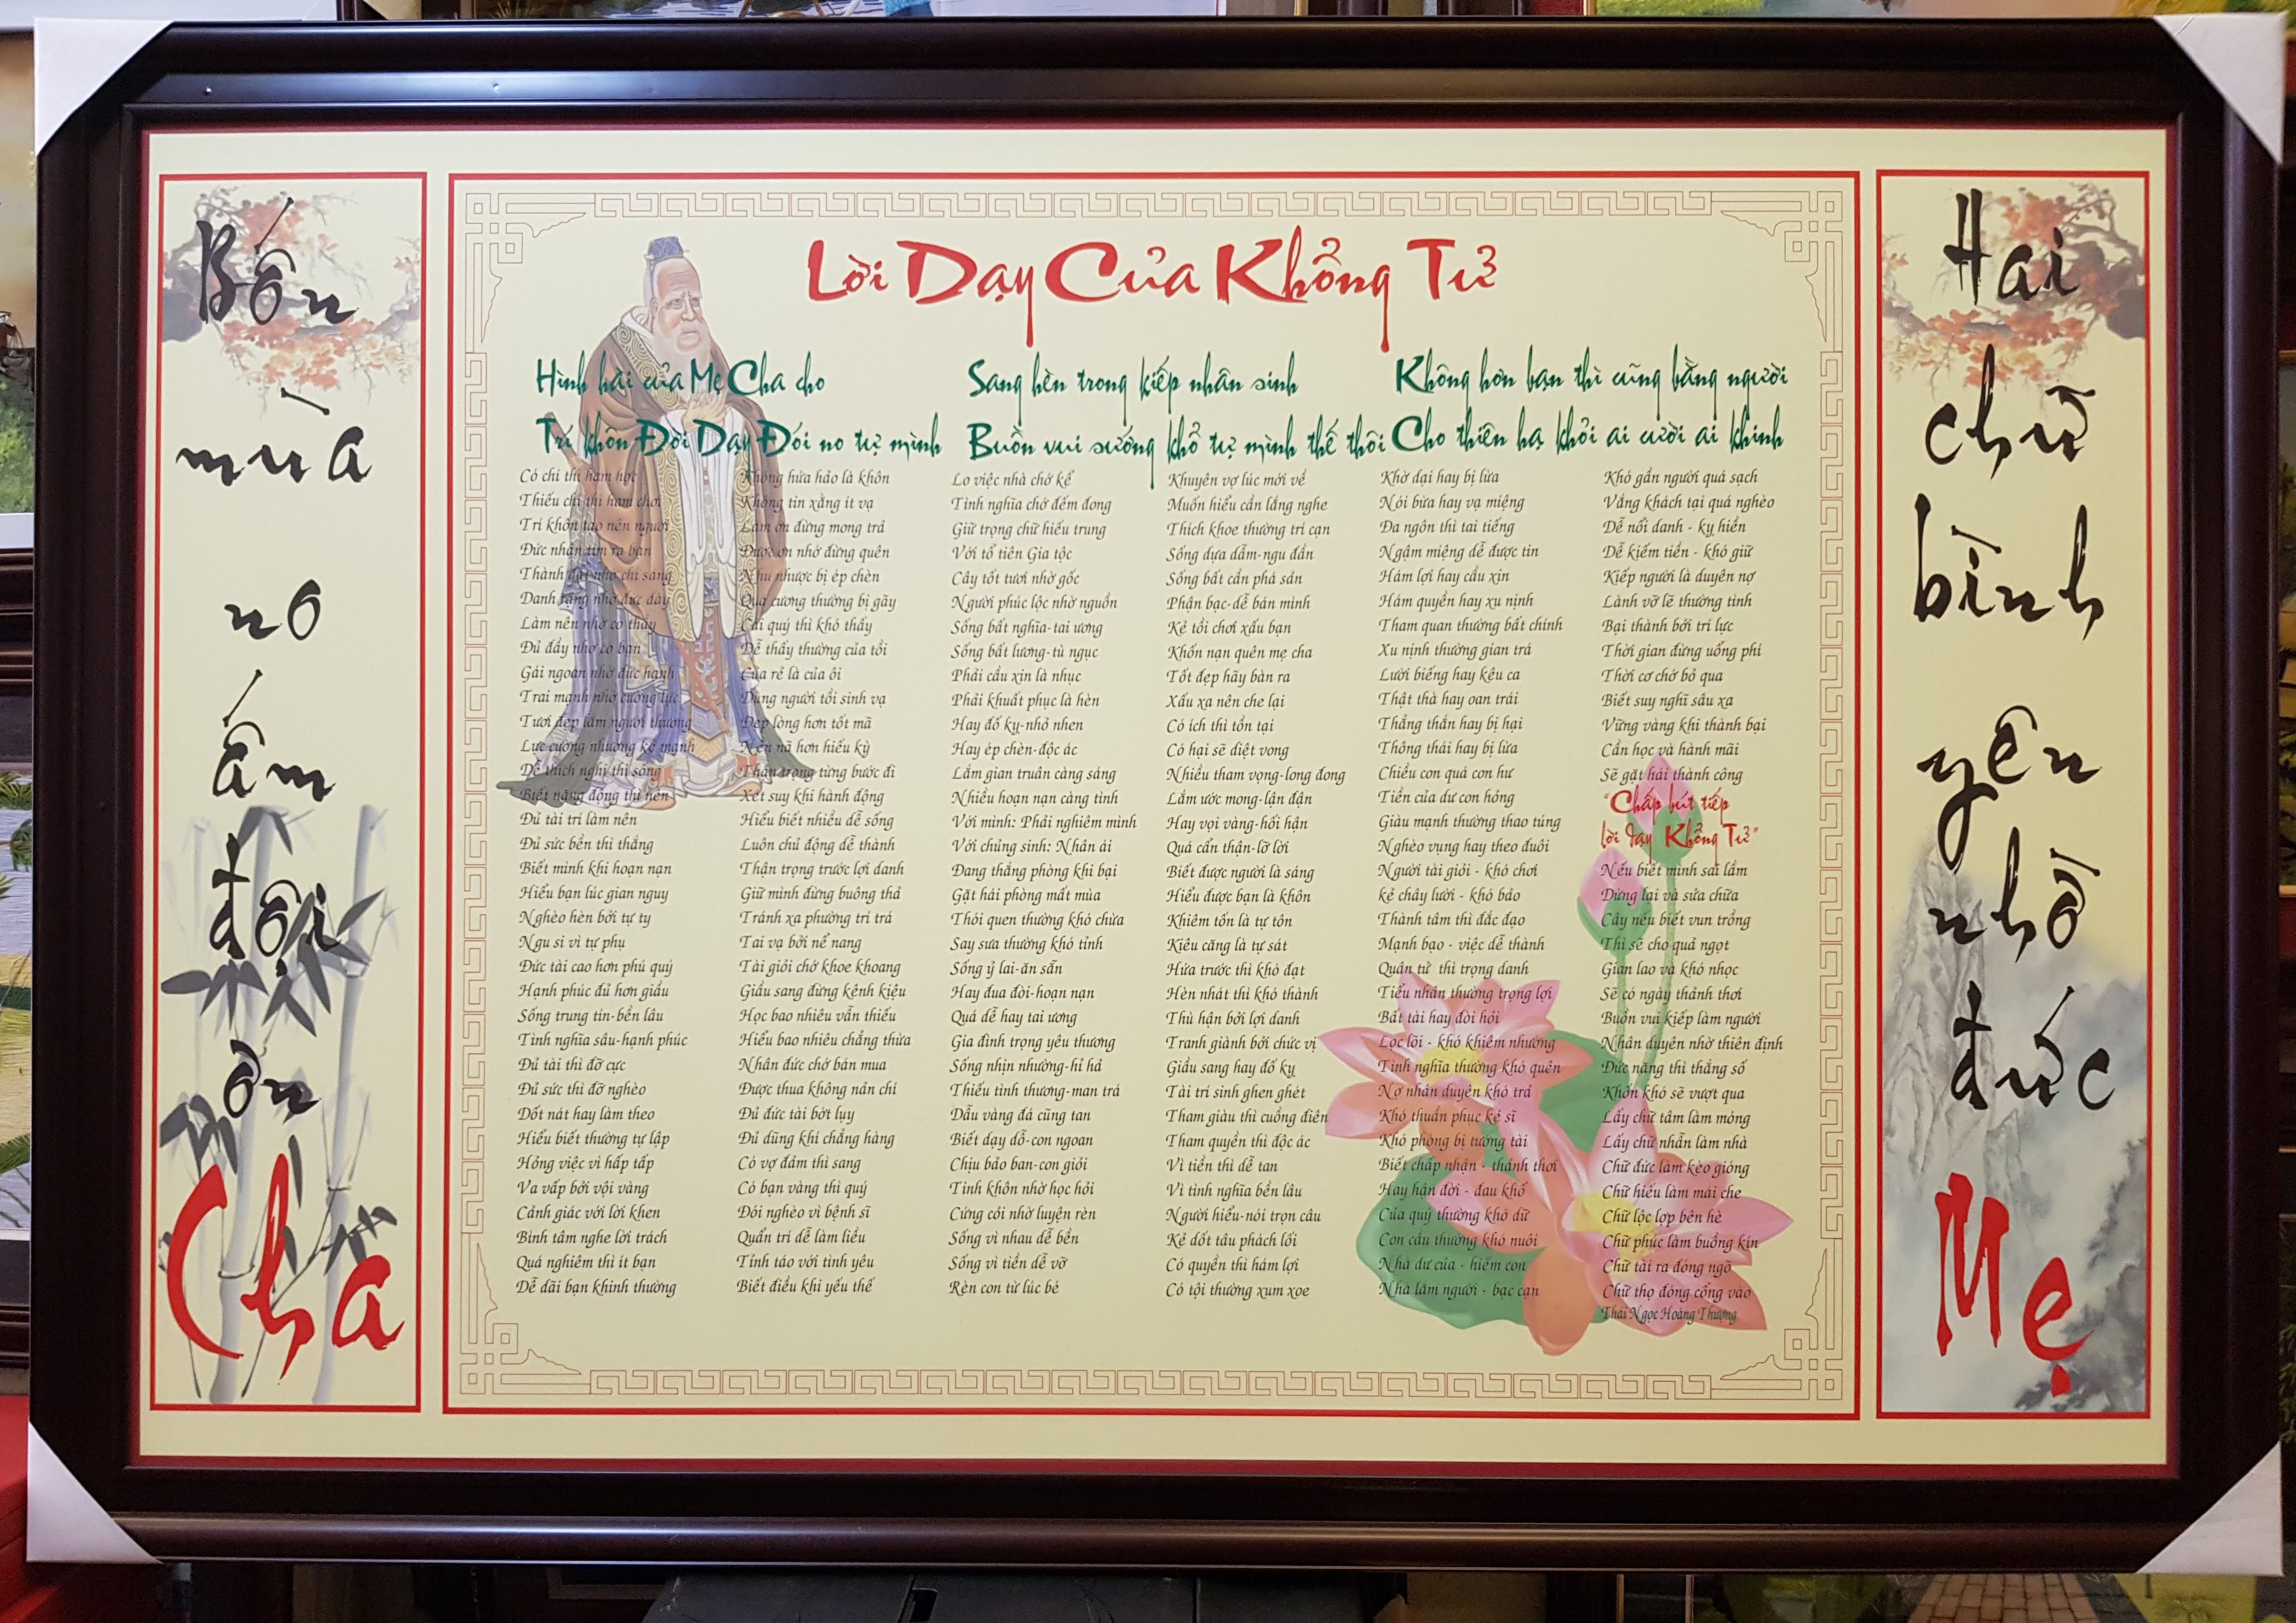 Bốn
mùa
no
ấm
đội
ơn
Cha
Lời Dạy Của Khổng Tử
Hình hài của Mẹ Cha cho
Trí khôn Đời Dạy Đói no tự mình
Sang hèn trong kiếp nhân sinh
Buồn vui sướng khổ tự mình thế thôi
Không hơn bạn thì cũng bằng người
Cho thiên hạ khỏi ai cười ai khinh
Có chí thì ham học
Thiếu chí thì ham chơi
Trí khôn tạo nên người
Đức nhân tìm ra bạn
Thành đạt nhờ chí sáng
Danh rạng nhờ đức dày
Làm nên nhờ có thầy
Đủ đầy nhờ có bạn
Gái ngoan nhờ đức hạnh
Trai mạnh nhờ cường lực
Tươi đẹp lắm người thương
Lực cường nhường kẻ mạnh
Dễ thích nghi thì sống
Biết năng động thì nên
Đủ tài trí làm nên
Đủ sức bền thì thắng
Biết mình khi hoạn nạn
Hiểu bạn lúc gian nguy
Nghèo hèn bởi tự ty
Ngu si vì tự phụ
Đức tài cao hơn phú quý
Hạnh phúc đủ hơn giầu
Sống trung tín-bền lâu
Tình nghĩa sâu-hạnh phúc
Đủ tài thì đỡ cực
Đủ sức thì đỡ nghèo
Dốt nát hay làm theo
Hiểu biết thường tự lập
Hỏng việc vì hấp tấp
Va vấp bởi vội vàng
Cảnh giác với lời khen
Bình tâm nghe lời trách
Quá nghiêm thì ít bạn
Dễ dãi bạn khinh thường
Không hứa hảo là khôn
Không tin xằng ít vạ
Làm ơn đừng mong trả
Được ơn nhớ đừng quên
Nhu nhược bị ép chèn
Quá cương thường bị gãy
Cái quý thì khó thấy
Dễ thấy thường của tồi
Của rẻ là của ôi
Dùng người tồi sinh vạ
Đẹp lòng hơn tốt mã
Nền nã hơn hiếu kỳ
Thận trọng từng bước đi
Xét suy khi hành động
Hiểu biết nhiều dễ sống
Luôn chủ động dễ thành
Thận trọng trước lợi danh
Giữ mình đừng buông thả
Tránh xa phường trí trá
Tai vạ bởi nể nang
Tài giỏi chớ khoe khoang
Giầu sang đừng kênh kiệu
Học bao nhiêu vẫn thiếu
Hiểu bao nhiêu chẳng thừa
Nhân đức chớ bán mua
Được thua không nản chí
Đủ đức tài bớt lụy
Đủ dũng khí chẳng hàng
Có vợ đảm thì sang
Có bạn vàng thì quý
Đói nghèo vì bệnh sĩ
Quẩn trí dễ làm liều
Tỉnh táo với tình yêu
Biết điều khi yếu thế
Lo việc nhà chớ kể
Tình nghĩa chớ đếm đong
Giữ trọng chữ hiếu trung
Với tổ tiên Gia tộc
Cây tốt tươi nhờ gốc
Người phúc lộc nhờ nguồn
Sống bất nghĩa-tai ương
Sống bất lương-tù ngục
Phải cầu xin là nhục
Phải khuất phục là hèn
Hay đố kỵ-nhỏ nhen
Hay ép chèn-độc ác
Lắm gian truân càng sáng
Nhiều hoạn nạn càng tinh
Với mình: Phải nghiêm minh
Với chúng sinh: Nhân ái
Đang thắng phòng khi bại
Gặt hái phòng mất mùa
Thói quen thường khó chừa
Say sưa thường khó tỉnh
Sống ỷ lại-ăn sẵn
Hay đua đòi-hoạn nạn
Quá dễ hay tai ương
Gia đình trọng yêu thương
Sống nhịn nhường-hỉ hả
Thiếu tình thương-man trá
Dẫu vàng đá cũng tan
Biết dạy dỗ-con ngoan
Chịu bảo ban-con giỏi
Tinh khôn nhờ học hỏi
Cứng cỏi nhờ luyện rèn
Sống vì nhau dễ bền
Sống vì tiền dễ vỡ
Rèn con từ lúc bé
Khuyên vợ lúc mới về
Muốn hiểu cần lắng nghe
Thích khoe thường trí cạn
Sống dựa dẫm-ngu đần
Sống bất cần phá sản
Phận bạc-dễ bán mình
Kẻ tồi chơi xấu bạn
Khốn nạn quên mẹ cha
Tốt đẹp hãy bàn ra
Xấu xa nên che lại
Có ích thì tồn tại
Có hại sẽ diệt vong
Nhiều tham vọng-long đong
Lắm ước mong-lận đận
Hay vọi vàng-hối hận
Quá cẩn thận-lỡ lời
Biết được người là sáng
Hiểu được bạn là khôn
Khiêm tốn là tự tôn
Kiêu căng là tự sát
Hứa trước thì khó đạt
Hèn nhát thì khó thành
Thù hận bởi lợi danh
Tranh giành bởi chức vị
Giầu sang hay đố kỵ
Tài trí sinh ghen ghét
Tham giàu thì cuồng điên
Tham quyền thì độc ác
Vì tiền thì dễ tan
Vì tình nghĩa bền lâu
Người hiểu-nói trọn câu
Kẻ dốt tâu phách lối
Có quyền thì hám lợi
Có tội thường xum xoe
Khờ dại hay bị lừa
Nói bừa hay vạ miệng
Đa ngôn thì tai tiếng
Ngậm miệng dễ được tin
Hám lợi hay cầu xin
Hám quyền hay xu nịnh
Tham quan thường bất chính
Xu nịnh thường gian trá
Lười biếng hay kêu ca
Thật thà hay oan trái
Thẳng thắn hay bị hại
Thông thái hay bị lừa
Chiều con quá con hư
Tiền của dư con hỏng
Giàu mạnh thường thao túng
Nghèo vụng hay theo đuôi
Người tài giỏi - khó chơi
kẻ chây lười - khó bảo
Thành tâm thì đắc đạo
Mạnh bạo - việc dễ thành
Quân tử thì trọng danh
Tiểu nhân thường trọng lợi
Bất tài hay đòi hỏi
Lọc lõi - khó khiêm nhường
Tình nghĩa thường khó quên
Nợ nhân duyên khó trả
Khó thuần phục kẻ sĩ
Khó phòng bị tướng tài
Biết chấp nhận - thảnh thơi
Hay hận đời - đau khổ
Của quý thường khó dữ
Con cầu thường khó nuôi
Nhà dư của - hiếm con
Nhà lắm người - bạc cạn
Khó gần người quá sạch
Vắng khách tại quá nghèo
Dễ nổi danh - kỵ hiền
Dễ kiếm tiền - khó giữ
Kiếp người là duyên nợ
Lành vỡ lẽ thường tình
Bại thành bởi trí lực
Thời gian đừng uổng phí
Thời cơ chớ bỏ qua
Biết suy nghĩ sâu xa
Vững vàng khi thành bại
Cần học và hành mãi
Sẽ gặt hái thành công
"Chấp bút tiếp
lời dạy Khổng Tử"
Nếu biết mình sai lầm
Dừng lại và sửa chữa
Cây nếu biết vun trồng
Thì sẽ cho quả ngọt
Gian lao và khó nhọc
Sẽ có ngày thảnh thơi
Buồn vui kiếp làm người
Nhân duyên nhờ thiên định
Đức năng thì thắng số
Khốn khó sẽ vượt qua
Lấy chữ tâm làm móng
Lấy chữ nhẫn làm nhà
Chữ đức làm kèo gióng
Chữ hiếu làm mái che
Chữ lộc lợp bên hè
Chữ phúc làm buồng kín
Chữ tài ra đóng ngõ
Chữ thọ đóng cổng vào
Thái Ngọc Hoàng Thương
Hai
chữ
bình
yên
nhờ
đức
Mẹ